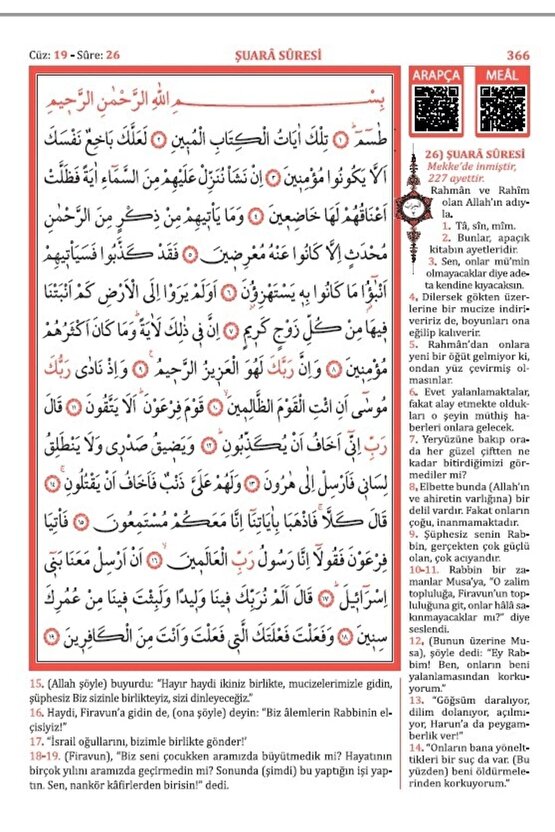 Cüz: 19 - Sûre: 26
ŞUARÂ SÛRESİ
366
بِسْــــــــــمِ اللّٰهِ الرَّحْمٰنِ الرَّحٖيمِ
طٰسٓمٓ ﴿١﴾ تِلْكَ اٰيَاتُ الْكِتَابِ الْمُبٖينِ ﴿٢﴾ لَعَلَّكَ بَاخِعٌ نَفْسَكَ
اَلَّا يَكُونُوا مُؤْمِنٖينَ ﴿٣﴾ اِنْ نَشَأْ نُنَزِّلْ عَلَيْهِمْ مِنَ السَّمَٓاءِ اٰيَةً فَظَلَّتْ
اَعْنَاقُهُمْ لَهَا خَاضِعٖينَ ﴿٤﴾ وَمَا يَأْتٖيهِمْ مِنْ ذِكْرٍ مِنَ الرَّحْمٰنِ
مُحْدَثٍ اِلَّا كَانُوا عَنْهُ مُعْرِضٖينَ ﴿٥﴾ فَقَدْ كَذَّبُوا فَسَيَأْتٖيهِمْ
اَنْبٰٓؤُ۬ا مَا كَانُوا بِهٖ يَسْتَهْزِؤُ۫نَ ﴿٦﴾ اَوَلَمْ يَرَوْا اِلَى الْاَرْضِ كَمْ اَنْبَتْنَا
فٖيهَا مِنْ كُلِّ زَوْجٍ كَرٖيمٍ ﴿٧﴾ اِنَّ فٖى ذٰلِكَ لَاٰيَةًؕ وَمَا كَانَ اَكْثَرُهُمْ
مُؤْمِنٖينَ ﴿٨﴾ وَاِنَّ رَبَّكَ لَهُوَ الْعَزٖيزُ الرَّحٖيمُ ﴿٩﴾ وَاِذْ نَادٰى رَبُّكَ
مُوسٰٓى اَنِ ائْتِ الْقَوْمَ الظَّالِمٖينَ ﴿١٠﴾ قَوْمَ فِرْعَوْنَؕ اَلَا يَتَّقُونَ ﴿١١﴾ قَالَ
رَبِّ اِنّٖٓى اَخَافُ اَنْ يُكَذِّبُونِ ﴿١٢﴾ وَيَضٖيقُ صَدْرٖى وَلَا يَنْطَلِقُ
لِسَانٖى فَاَرْسِلْ اِلٰى هٰرُونَ ﴿١٣﴾ وَلَهُمْ عَلَىَّ ذَنْبٌ فَاَخَافُ اَنْ يَقْتُلُونِ ﴿١٤﴾
قَالَ كَلَّاۚ فَاذْهَبَا بِاٰيَاتِنَٓا اِنَّا مَعَكُمْ مُسْتَمِعُونَ ﴿١٥﴾ فَأْتِيَا
فِرْعَوْنَ فَقُولَٓا اِنَّا رَسُولُ رَبِّ الْعَالَمٖينَ ﴿١٦﴾ اَنْ اَرْسِلْ مَعَنَا بَنٖٓى
اِسْرَٓائٖلَؕ ﴿١٧﴾ قَالَ اَلَمْ نُرَبِّكَ فٖينَا وَلٖيدًا وَلَبِثْتَ فٖينَا مِنْ عُمُرِكَ
سِنٖينَ ﴿١٨﴾ وَفَعَلْتَ فَعْلَتَكَ الَّتٖى فَعَلْتَ وَاَنْتَ مِنَ الْكَافِرٖينَ ﴿١٩﴾
ARAPÇA
MEÂL
26) ŞUARÂ SÛRESİ
Mekke'de inmiştir,
227 ayettir.
Rahmân ve Rahîm
olan Allah'ın adıy-
la.
1. Tâ, sîn, mîm.
2. Bunlar, apaçık
kitabın ayetleridir.
3. Sen, onlar mü'min
olmayacaklar diye ade-
ta kendine kıyacaksın.
4. Dilersek gökten üzer-
lerine bir mucize indiri-
veririz de, boyunları ona
eğilip kalıverir.
5. Rahmân'dan onlara
yeni bir öğüt gelmiyor ki,
ondan yüz çevirmiş ol-
masınlar.
6. Evet yalanlamaktalar,
fakat alay etmekte olduk-
ları o şeyin müthiş ha-
berleri onlara gelecek.
7. Yeryüzüne bakıp ora-
da her güzel çiftten ne
kadar bitirdiğimizi gör-
mediler mi?
8. Elbette bunda (Allah'ın
ve ahiretin varlığına) bir
delil vardır. Fakat onların
çoğu, inanmamaktadır.
9. Şüphesiz senin Rab-
bin, gerçekten çok güçlü
olan, çok acıyandır.
10-11. Rabbin bir za-
manlar Musa'ya, "O zalim
topluluğa, Firavun'un top-
luluğuna git, onlar hâlâ sa-
kınmayacaklar mı?" diye
seslendi.
12. (Bunun üzerine Mu-
sa), şöyle dedi: "Ey Rab-
bim! Ben, onların beni
yalanlamasından korku-
yorum."
13. "Göğsüm daralıyor,
dilim dolanıyor, açılmı-
yor, Harun'a da peygam-
berlik ver!"
14. "Onların bana yönelt-
tikleri bir suç da var. (Bu
yüzden) beni öldürmele-
rinden korkuyorum."
15. (Allah şöyle) buyurdu: "Hayır haydi ikiniz birlikte, mucizelerimizle gidin,
şüphesiz Biz sizinle birlikteyiz, sizi dinleyeceğiz."
16. Haydi, Firavun'a gidin de, (ona şöyle) deyin: "Biz âlemlerin Rabbinin el-
çisiyiz!"
17. "İsrail oğullarını, bizimle birlikte gönder!'
18-19. (Firavun), "Biz seni çocukken aramızda büyütmedik mi? Hayatının
birçok yılını aramızda geçirmedin mi? Sonunda (şimdi) bu yaptığın işi yap-
tın. Sen, nankör kâfirlerden birisin!" dedi.